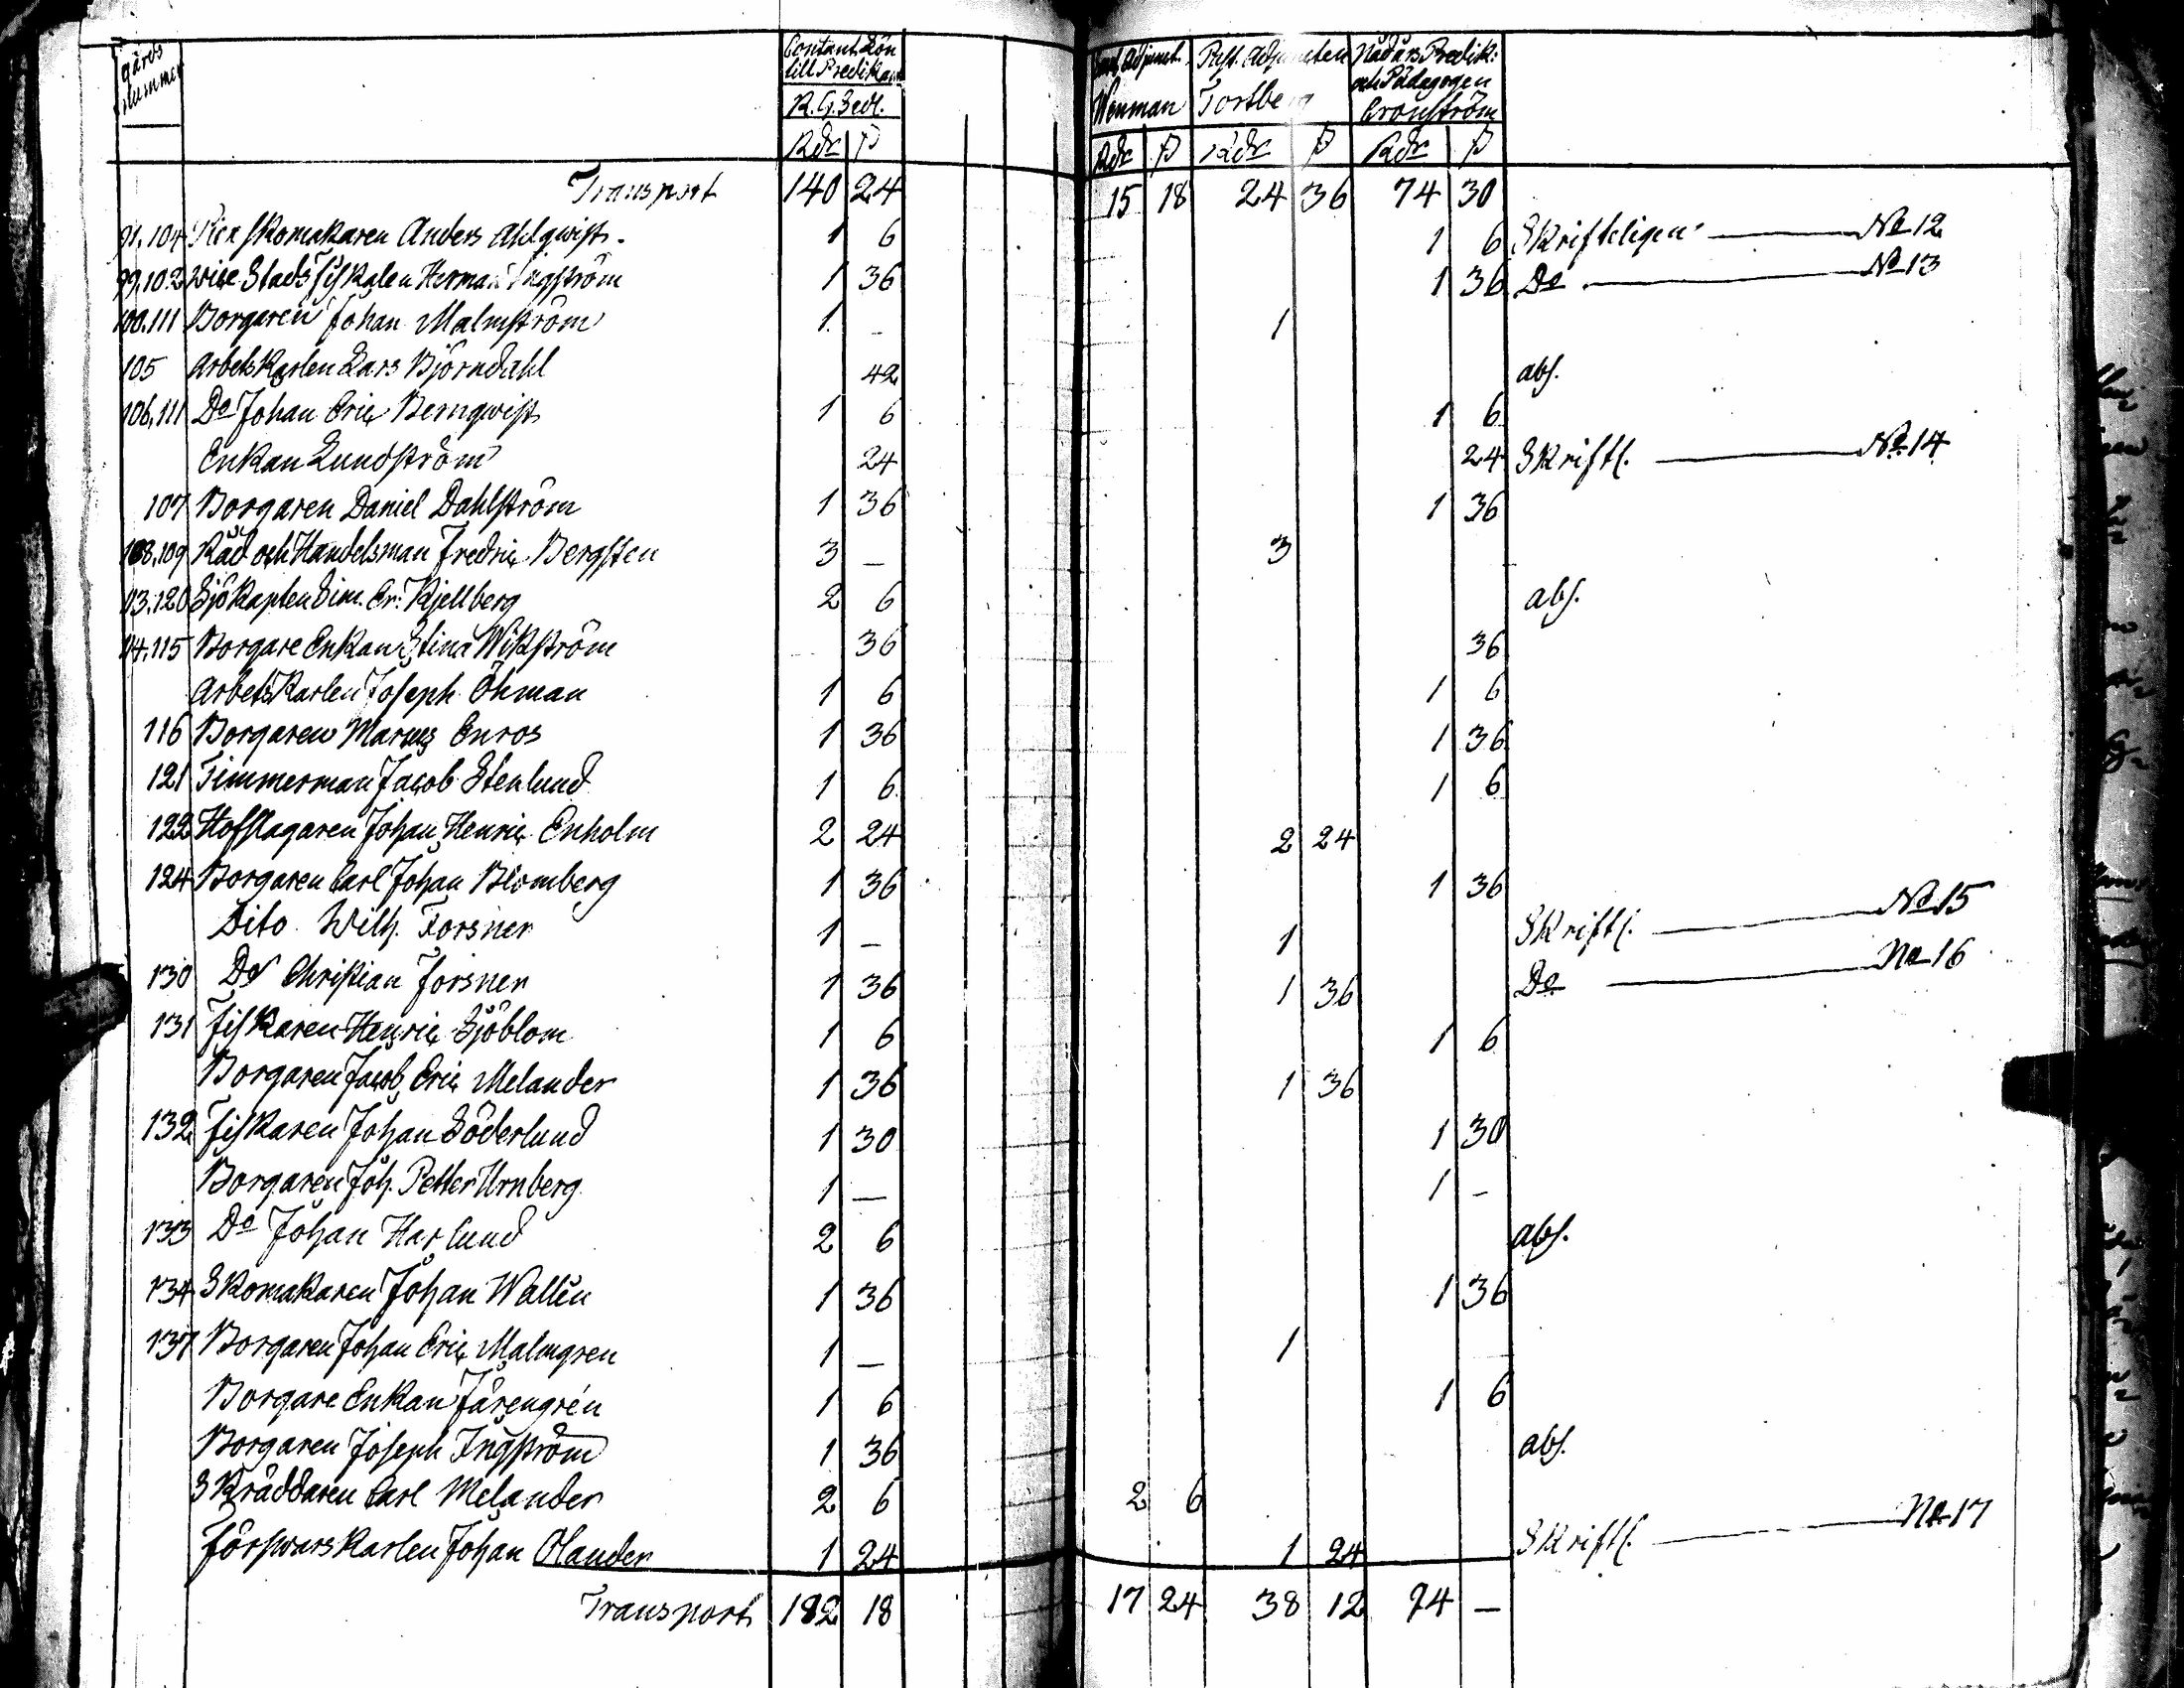 gårds nummer
Contant Lön till Predikant.
R. G. Sedl.
Rdr ß
Adjunct. Wenman
Past. Adjuncten Fortberg
Nådårs Predik: och Pädagogen Cronström
Rdr ß Rdr ß Rdr ß
Transport 140 24 15 18 24 36 74 30
91.104 Skomakaren Anders Ahlqwist. 1 6 1 6 Skrifteligen No 12
99.103 wice Stads fiskalen Herman Ingström 1 36 1 36 Do No 13
100.111 Borgaren Johan Malmström 1. - 1
105 Arbetskarlen Lars Björndahl 42 abs.
106.111 Do Johan Eric Bernqwist 1 6 1 6
Enkan Lundström 24 24 Skriftl. No 14
107 Borgaren Daniel Dahlström 1 36 1 36
108.109 Råd och Handelsman Fredric Bergsten 3 - 3
113.120 Sjökapten Sim. Er. Kjellberg 2 6 abs.
114.115 Borgare Enkan Stina Wikström 36 36
Arbetskarlen Joseph Öhman 1 6 1 6
116 Borgaren Marcus Enros 1 36 1 36
121 Timmerman Jacob Stenlund 1 6 1 6
122 Hofslagaren Johan Henric Enholm 2 24 2 24
124 Borgaren Carl Johan Blomberg 1 36 1 36
Dito Wilh. Forsner 1 - 1 Skriftl. No 15
130 Do Christian Forsner 1 36 1 36 Do No 16
131 Fiskaren Henric Sjöblom 1 6 1 6
Borgaren Jacob Eric Melander 1 36 1 36
132 Fiskaren Johan Söderlund 1 30 1 30
Borgaren Joh. Petter Urnberg 1 - 1 -
133 Do Johan Haglund 2 6 abs.
134 Skomakaren Johan Wallin 1 36 1 36
137 Borgaren Johan Eric Malmgren 1 - 1
Borgare Enkan Färengrén 1 6 1 6
Borgaren Joseph Ingström 1 36 abs.
Skräddaren Carl Melander 2 6 2 6
Förswarskarlen Johan Olander 1 24 1 24 Skriftl. No 17
Transport 182 18 17 24 38 12 94 -